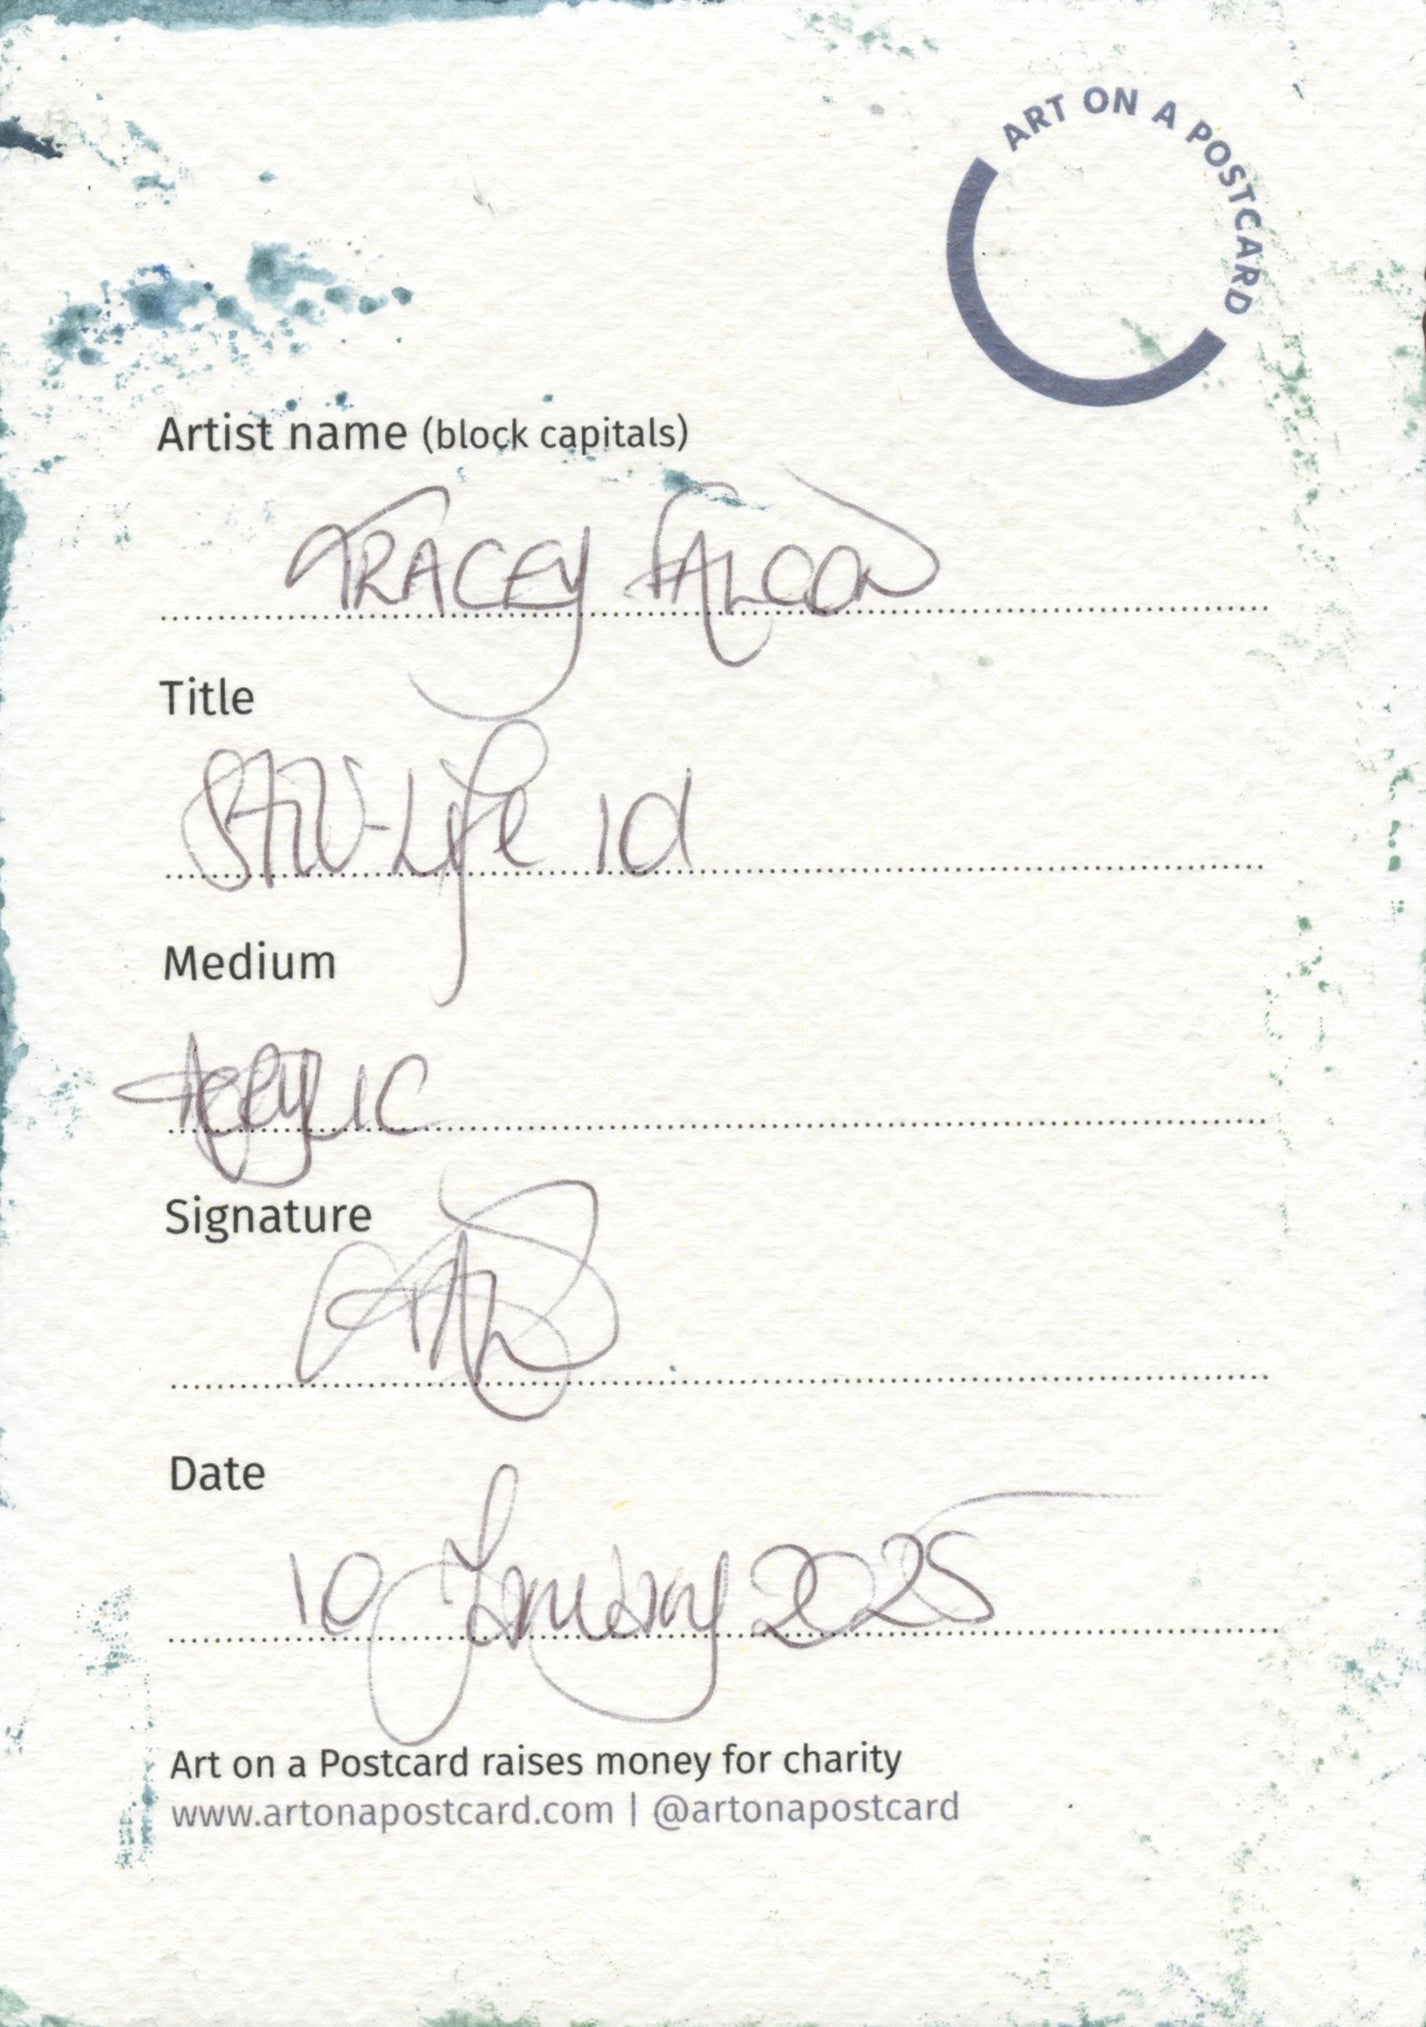 ART ON A POSTCARD
Artist name (block capitals)
TRACEY FALCON
Title
Still-Life 1d
Medium
Acrylic
Signature
Date
10 January 2025
Art on a Postcard raises money for charity
www.artonapostcard.com | @artonapostcard